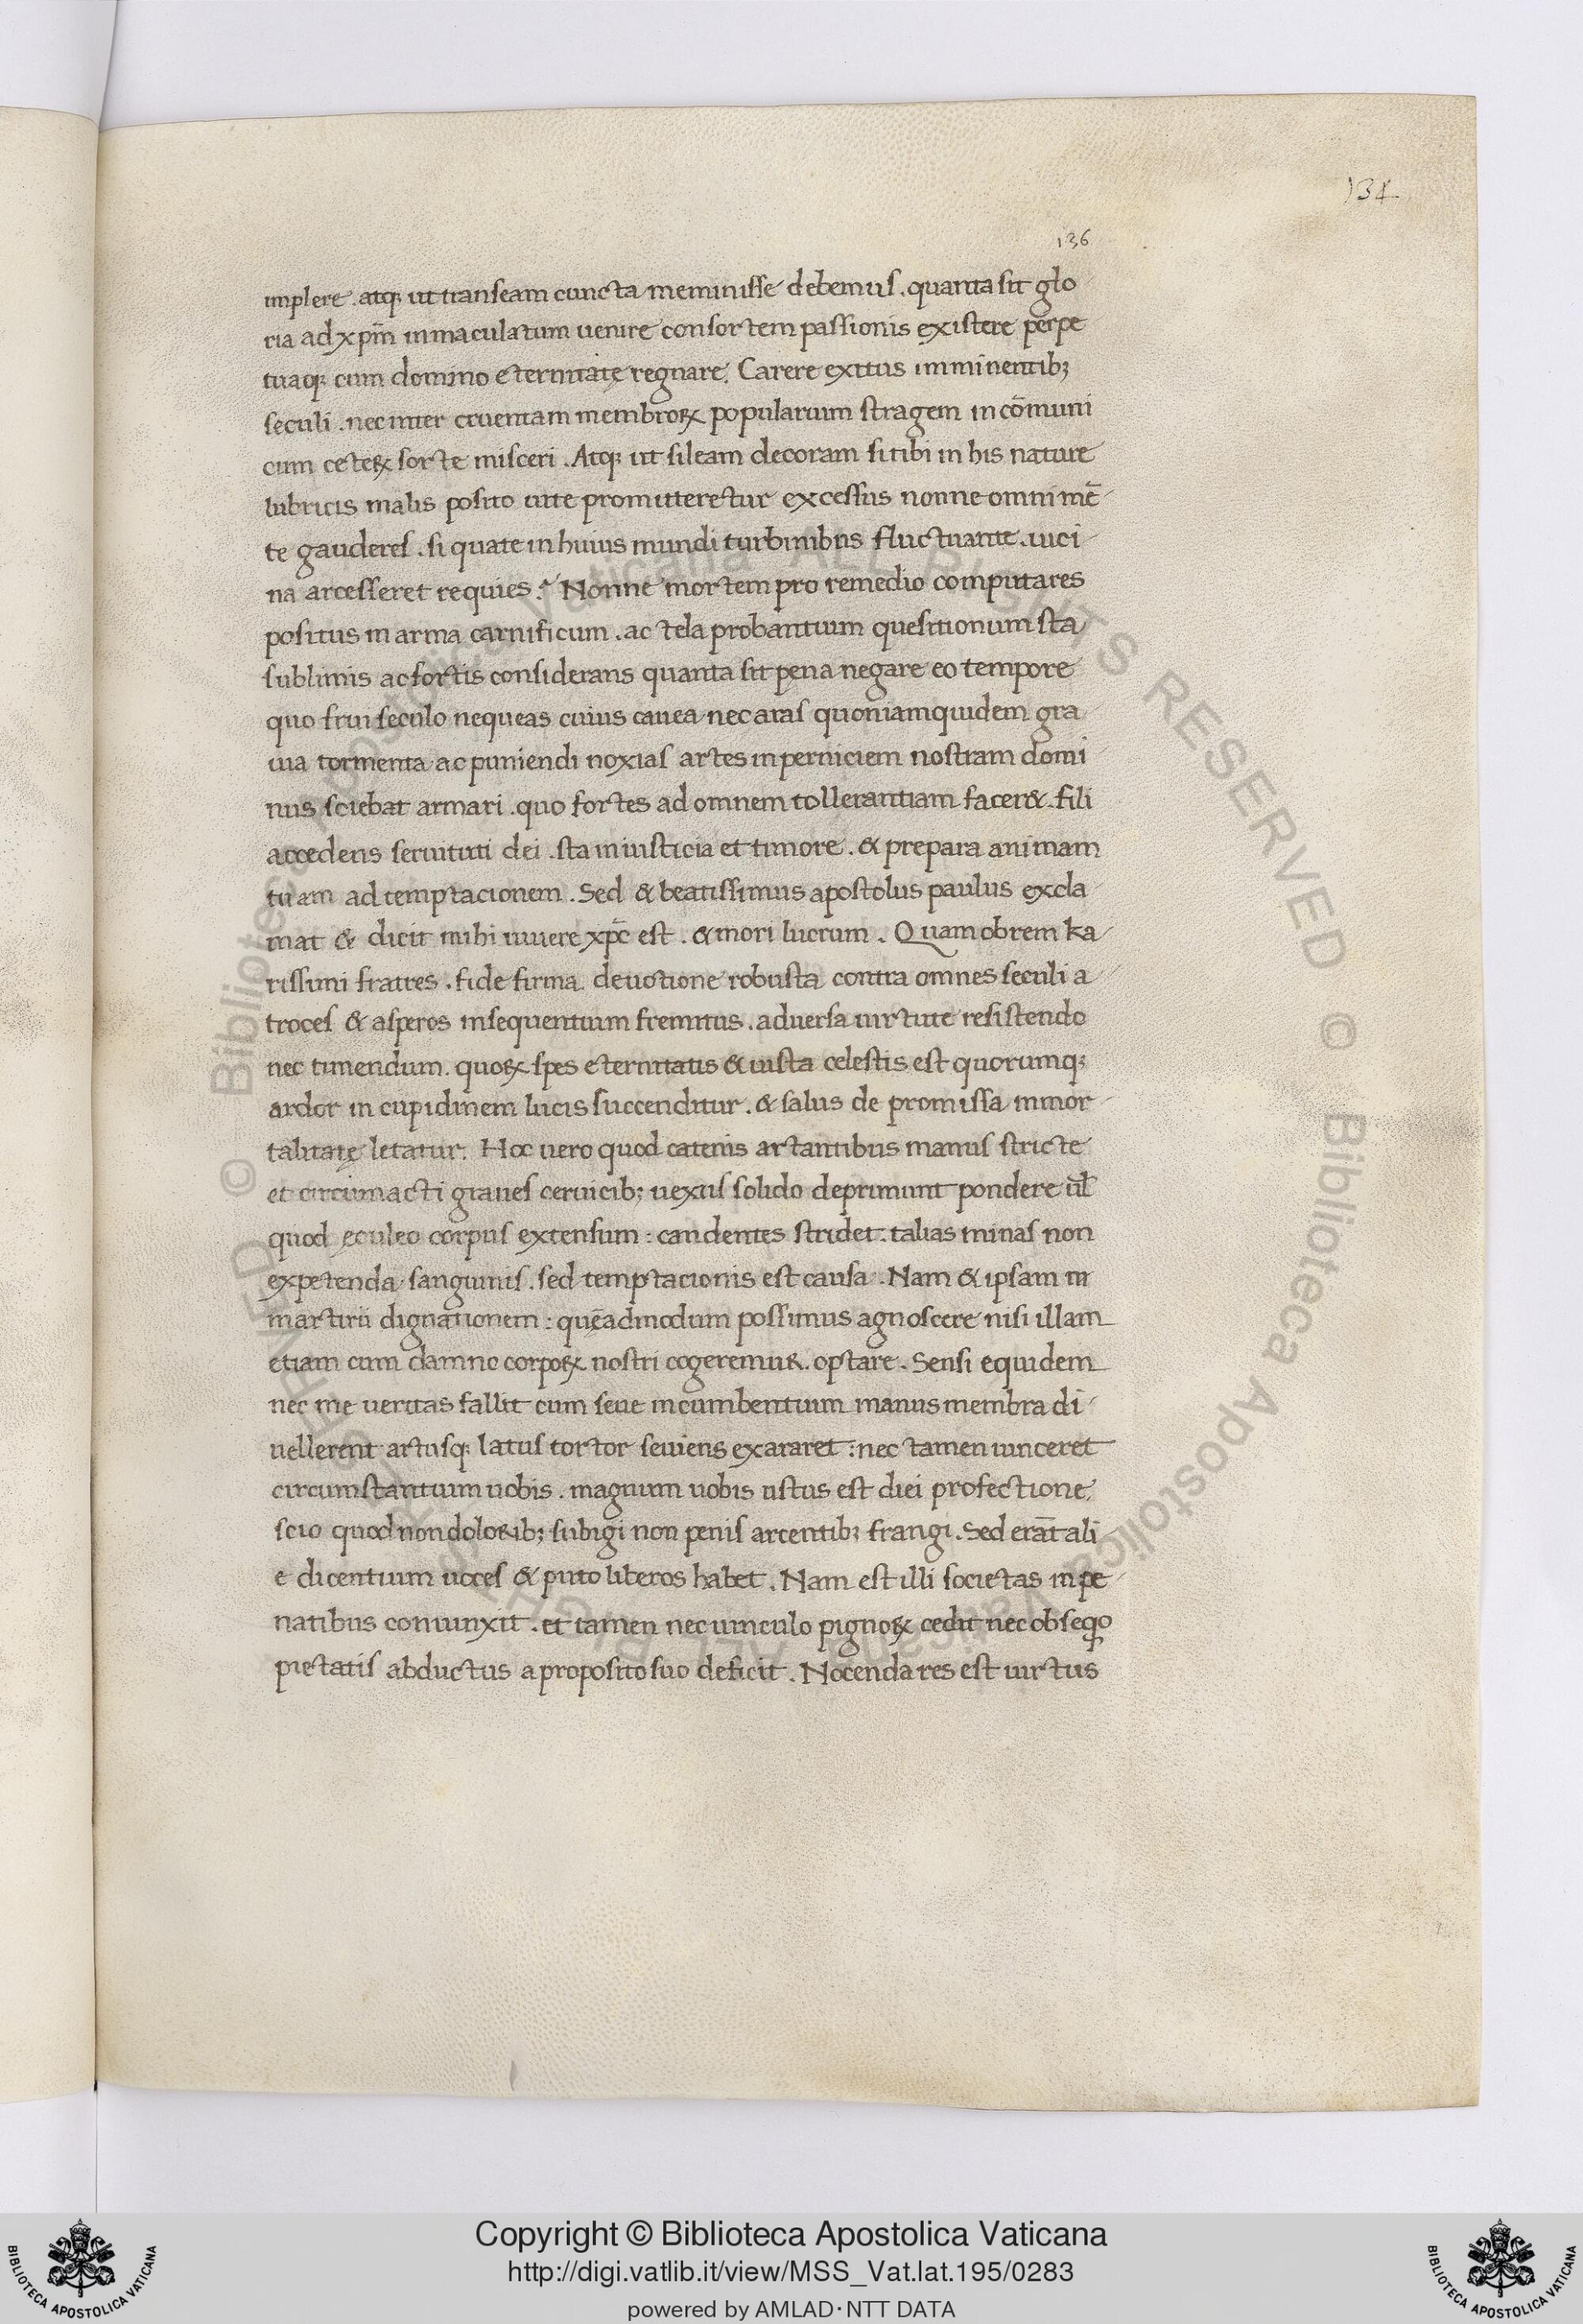 134
136
implere. atq; ut transeam cuncta meminisse debemus. quanta sit glo
ria ad xp̄m inmaculatum uenire consortem passionis existere perpe
tuaq; cum domino eternitatę regnare. Carere exitus imminentib;
seculi. nec inter cruentam membroꝝ popularium stragem in cōmuni
cum ceteꝝ sorte misceri. Atq; ut sileam decoram si tibi in his nature
lubricis malis posito uite promitteretur excessus nonne omni mē
te gauderes. si quate in huius mundi turbinibus fluctuante. uici
na arcesseret requies? Nonne mortem pro remedio computares
positus in arma carnificum. ac tela probantium quesitionum sta
sublimis ac fortis considerans quanta sit pena negare eo tempore
quo frui seculo nequeas cuius cauea nec aras quoniamquidem gra
uia tormenta ac puniendi noxias artes in perniciem nostram domi
nus sciebat armari. quo fortes ad omnem tollerantiam facer&. fili
accedens seruituti dei. sta in iusticia et timore. & prepara animam
tuam ad temptacionem. Sed & beatissimus apostolus paulus excla
mat & dicit mihi uiuere xp̄c est. & mori lucrum. Quamobrem ka
rissimi fratres. fide firma. deuotione robusta contra omnes seculi a
troces & asperos insequentium fremitus. aduersa uirtute resistendo
nec timendum. quoꝝ spes eternitatis & uista celestis est quorumq;
ardor in cupidinem lucis succenditur. & salus de promissa inmor
talitatę letatur. Hoc uero quod catenis artantibus manus stricte
et circumacti graues ceruicib; uexus solido deprimunt pondere ul̄
quod eculeo corpus extensum: candentes stridet. talias minas non
expetenda sanguinis. sed temptacionis est causa. Nam & ipsam in
martirii dignationem: quēadmodum possimus agnoscere nisi illam
etiam cum damno corpoꝝ nostri cogeremur. optare. Sensi equidem
nec me ueritas fallit cum seue incumbentium manus membra di
uellerent artusq; latus tortor seuiens exararet: nec tamen uinceret
circumstantium uobis. magnum uobis ustus est diei profectione.
scio quod non dolorib; subigi non penis arcentib; frangi. Sed erāt ali
e dicentium uoces & puto liberos habet. Nam est illi societas in pe
natibus coniunxit. et tamen nec uinculo pignoꝝ cedit nec obseqͦ
pietatis abductus a proposito suo deficit. Nocenda res est uirtus
Copyright © Biblioteca Apostolica Vaticana
http://digi.vatlib.it/view/MSS_Vat.lat.195/0283
powered by AMLAD·NTT DATA
BIBLIOTECA APOSTOLICA VATICANA
BIBLIOTECA APOSTOLICA VATICANA